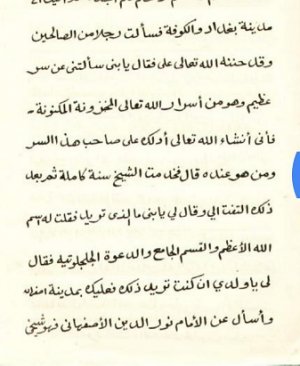 مدينة بغداد والكوفة فسألت رجلا من الصالحين
وقد حننه الله تعالى على فقال يابنى سألتنى عن سر
عظيم وهو من أسرار الله تعالى المخزونة المكنونة -
فأنى أنشاء الله تعالى أدلك على صاحب هذا السر
ومن هو عنده قال فخدمت الشيخ سنة كاملة ثم بعد
ذلك التفت الي وقال لي يابنى ما الذى تريد فقلت له اسم
الله الأعظم والقسم الجامع والدعوة الجلجلوتية فقال
لي ياولدي ان كنت تريد ذلك فعليك بمدينة
وأسأل عن الأمام نور الدين الأصفهاني فهو شيخي